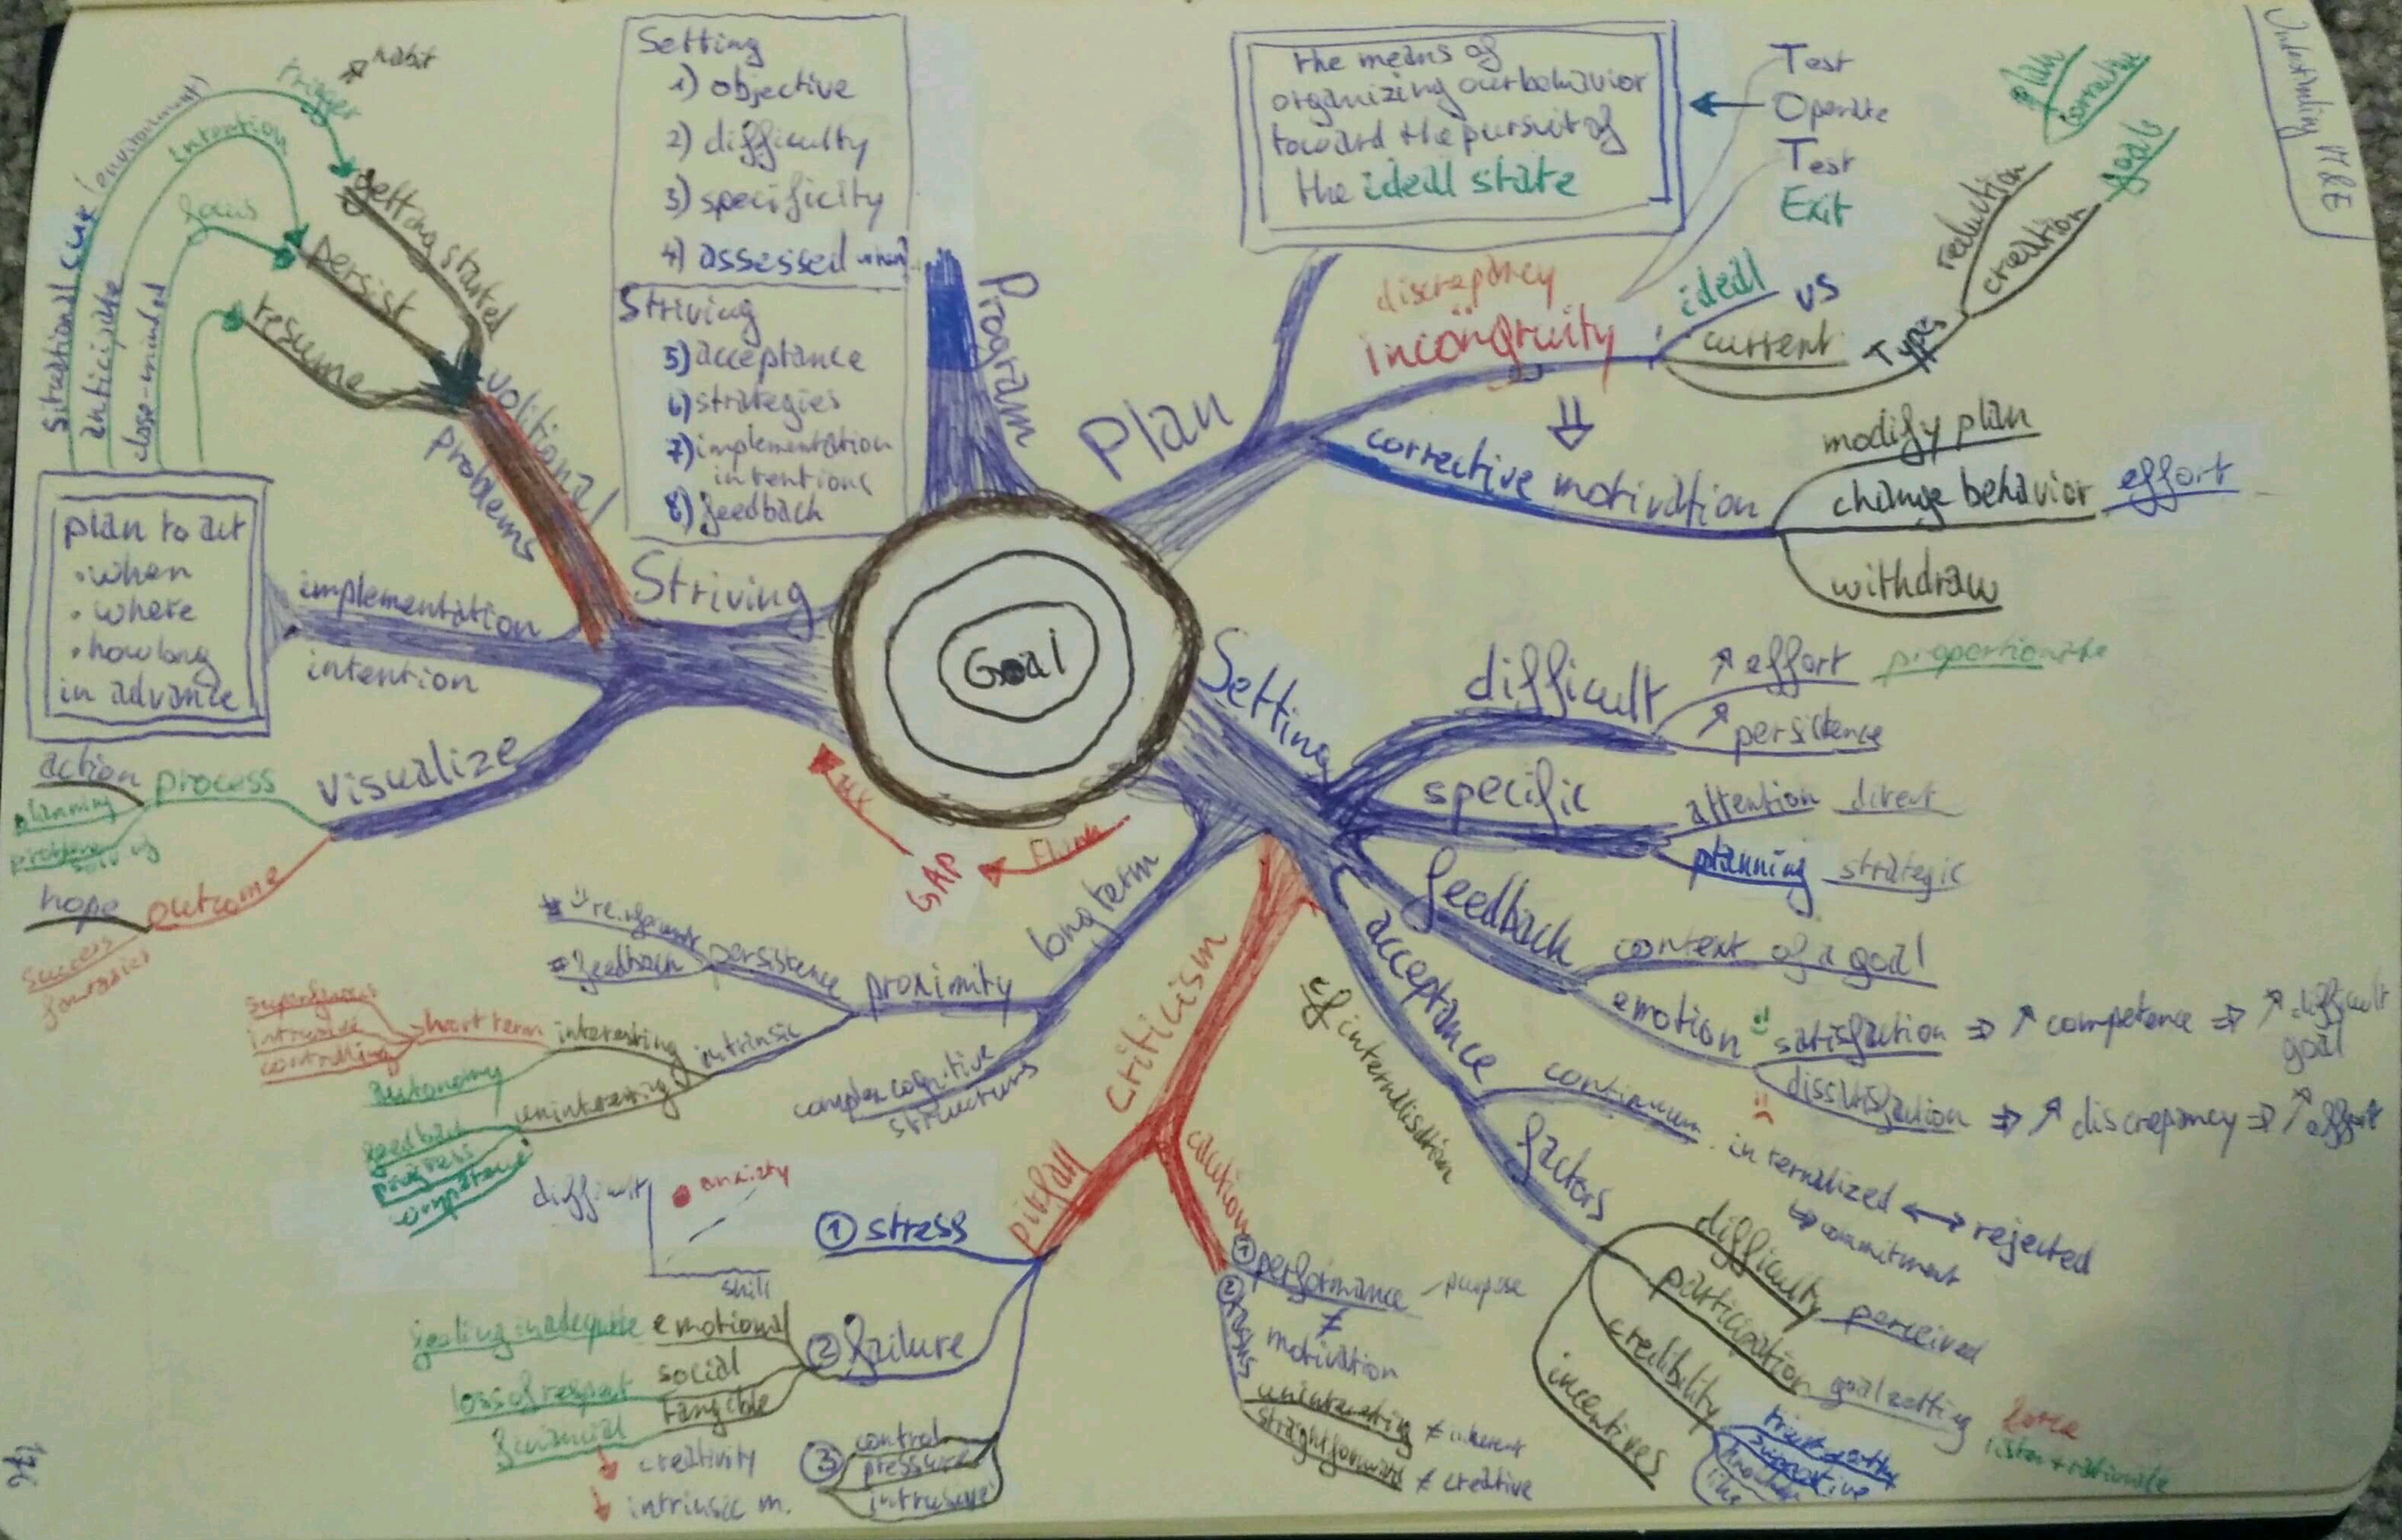 habit
trigger
intention
focus
situational cue (environment)
anticipate
close-minded
getting started
persist
resume
volitional
problems
plan to act
• when
• where
• how long
in advance
implementation
intention
Striving
visualize
process
action
planning
problem solving
outcome
hope
success
fantasies
Setting
1) objective
2) difficulty
3) specificity
4) assessed when?
Striving
5) acceptance
6) strategies
7) implementation
intentions
8) feedback
Program
Goal
Plan
the means of
organizing our behavior
toward the pursuit of
the ideal state
Test
Operate
Test
Exit
discrepancy
incongruity
ideal
vs
current
Types
reduction
creation
plan
corrective
goals
Understanding M&E
corrective motivation
modify plan
change behavior effort
withdraw
Setting
difficult
↗ effort proportionate
↗ persistence
specific
attention direct
planning strategic
feedback
content of a goal
emotion
satisfaction ⇒ ↗ competence ⇒ ↗ difficult
goal
dissatisfaction ⇒ ↗ discrepancy ⇒ ↗ effort
acceptance
cf internalisation
continuum
internalized ↔ rejected
↳ commitment
factors
difficulty perceived
participation goal setting
force
listen + rationale
credibility
supportive
incentives
GAP
long term
proximity
persistence
feedback
intrinsic
interesting
short term
superfluous
intrusive
controlling
autonomy
uninteresting
feedback
progress
competence
complex cognitive
structures
criticism
pitfall
① stress
difficult
anxiety
skill
② failure
emotional
feeling inadequate
social
loss of respect
tangible
financial
③
control
pressure
intrusive
creativity
intrinsic m.
caution
① performance - purpose
≠
motivation
②
uninteresting ≠ inherent
straightforward ≠ creative